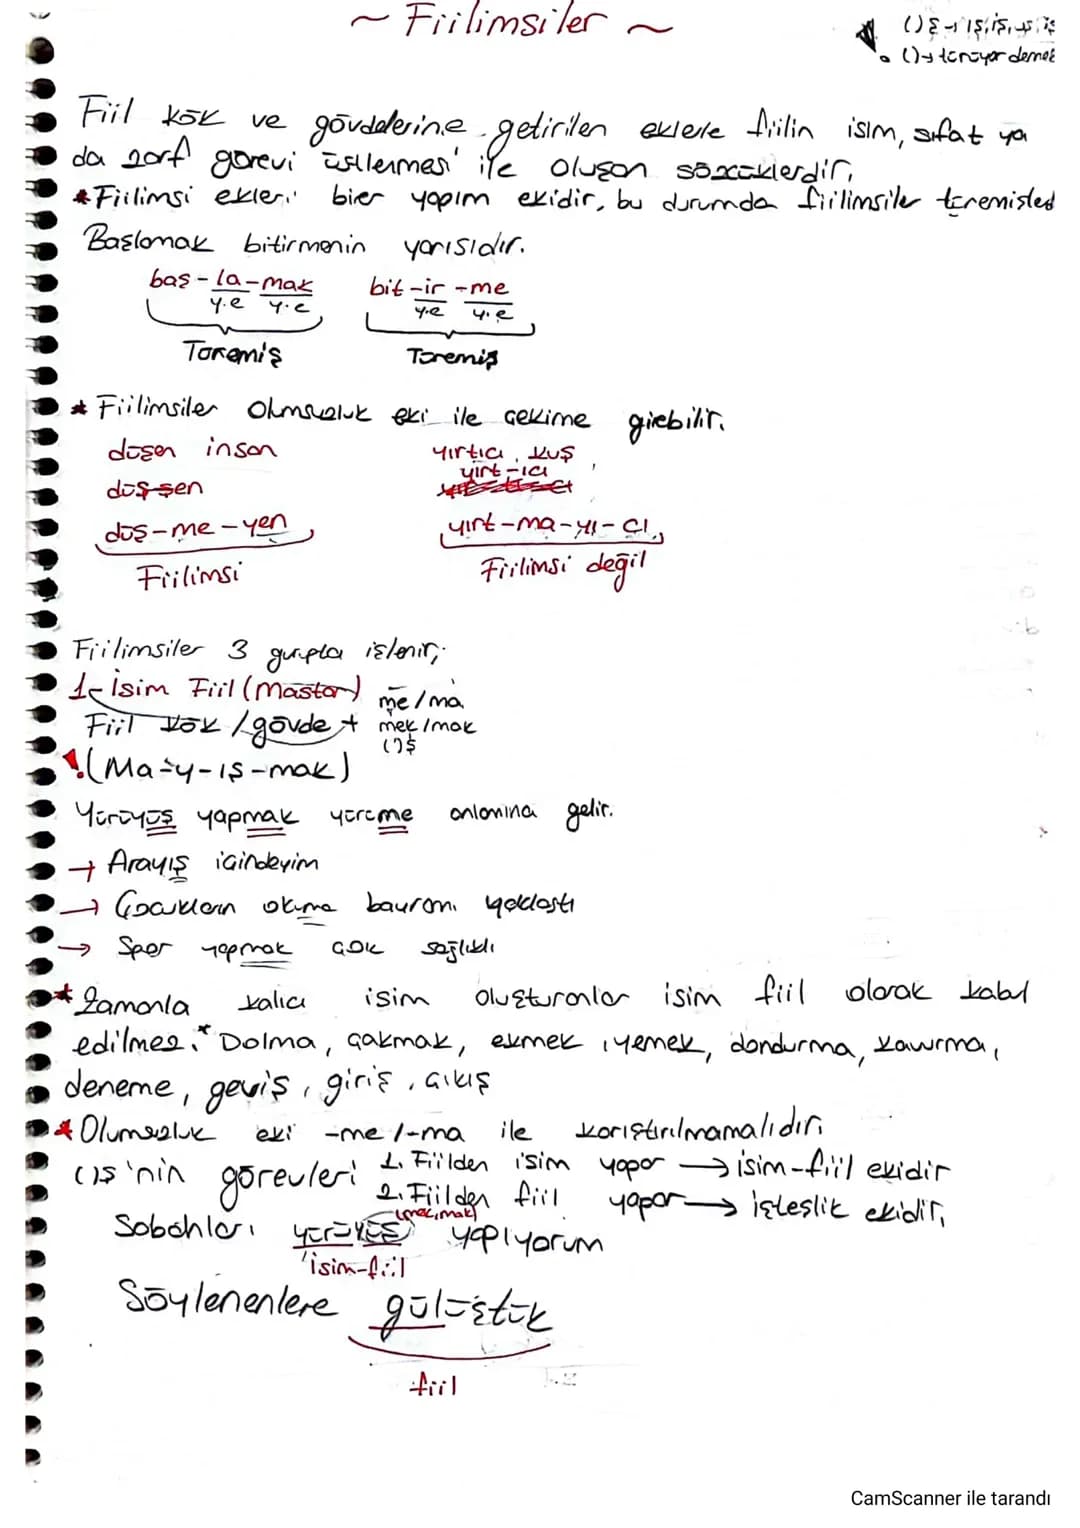 ~ Fiilimsiler ~
( )ş → ış, iş, uş, üş
( ) → türüyor demek
Fiil kök ve gövdelerine getirilen eklerle fiilin isim, sıfat ya
da zarf görevi üstlenmesi ile oluşan sözcüklerdir.
* Fiilimsi ekleri birer yapım ekidir, bu durumda fiilimsiler türemişted
Başlamak bitirmenin yarısıdır.
baş-la-mak bit-ir-me
y.e y.e y.e y.e
Türemiş Türemiş
* Fiilimsiler Olumsuzluk eki ile çekime girebilir.
düşen insan yırtıcı kuş
yırt-ıcı
düş-şen
düş-me-yen yırt-ma-yı-cı
Fiilimsi Fiilimsi değil
Fiilimsiler 3 grupta işlenir;
1- İsim Fiil (Mastar) me/ma
Fiil kök/gövde + mek/mak
( )ş
! (Ma-y-ış-mak)
Yürüyüş yapmak yürüme anlamına gelir.
→ Arayış içindeyim
→ Çocukların okuma bayramı yaklaştı
→ Spor yapmak çok sağlıklı
* Zamanla kalıcı isim oluşturanlar isim fiil olarak kabul
edilmez. * Dolma, çakmak, ekmek, yemek, dondurma, kavurma,
deneme, geviş, giriş, çıkış
* Olumsuzluk eki -me/-ma ile karıştırılmamalıdır.
( )ş'nin görevleri 1. Fiilden isim yapar → isim-fiil ekidir
2. Fiilden fiil yapar → işteşlik ekidir.
(mek, mak)
Sabahları yürüyüş yapıyorum
isim-fiil
Söylenenlere gülüştük
fiil
CamScanner ile tarandı